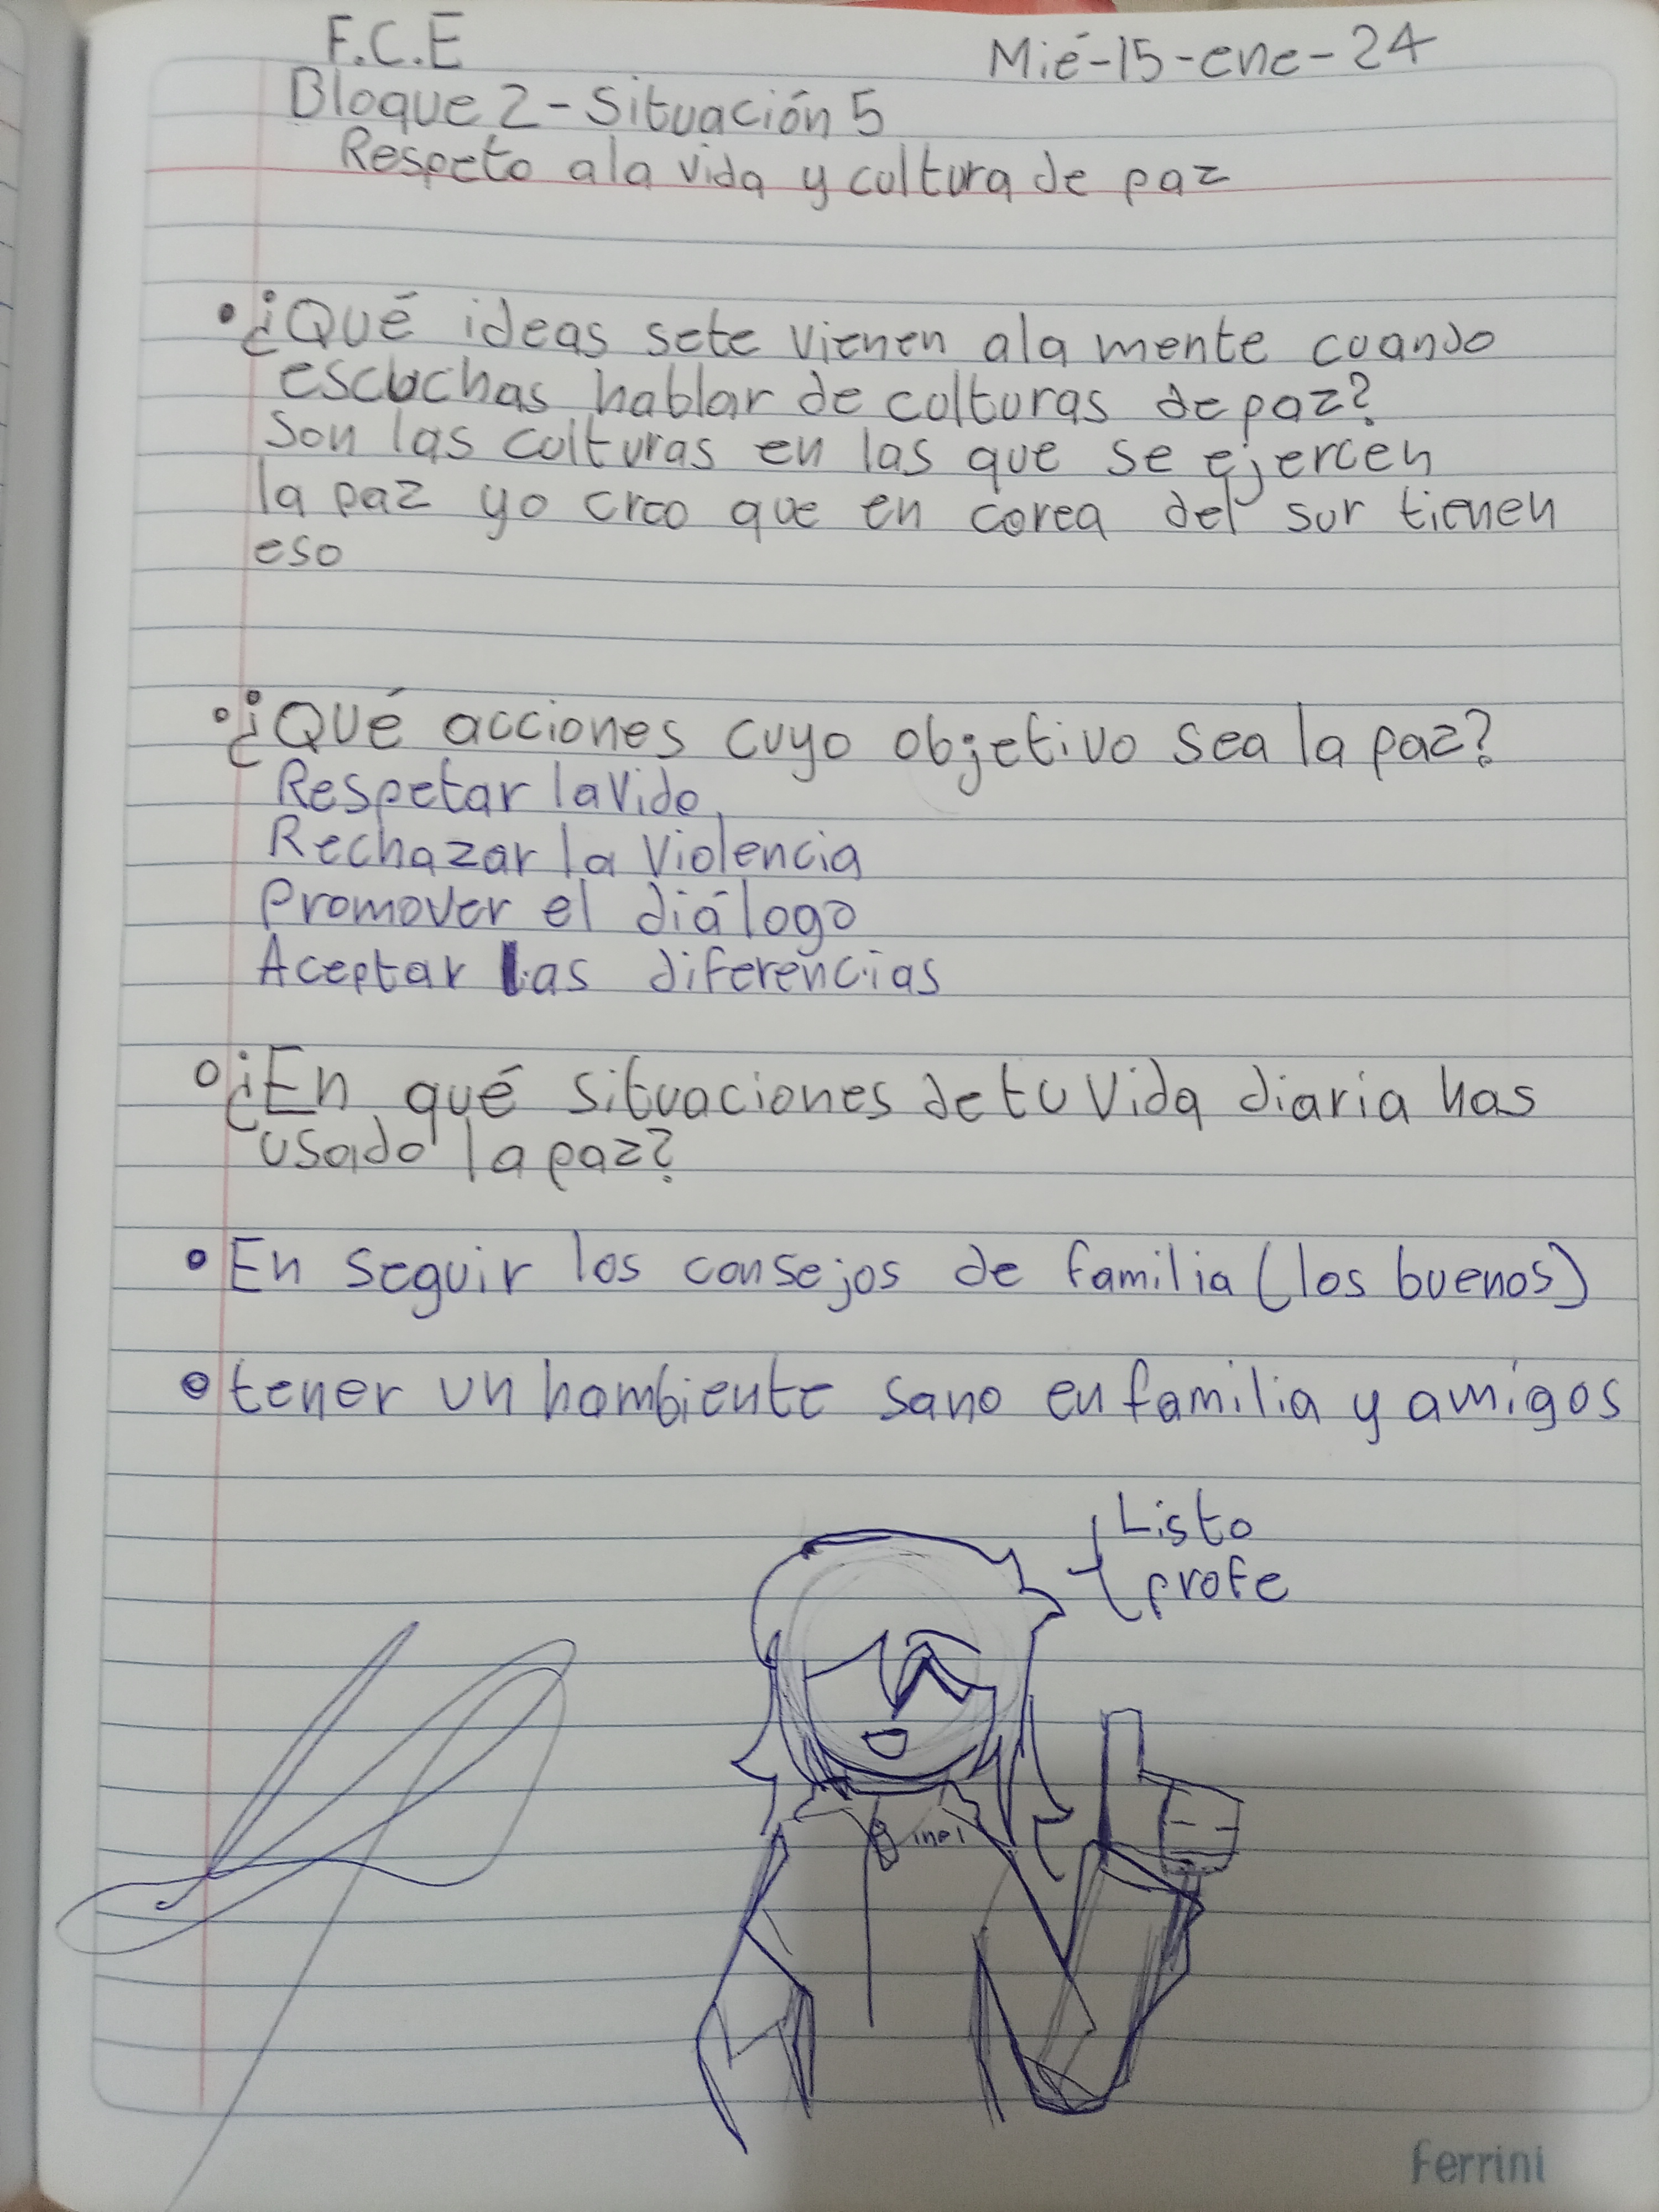 F.C.E
Mié-15-ene-24
Bloque 2 - Situación 5
Respeto ala vida y cultura de paz
• ¿Qué ideas sete vienen ala mente cuando
escuchas hablar de culturas de paz?
Son las culturas en las que se ejercen
la paz yo creo que en corea del sur tienen
eso
• ¿Qué acciones cuyo objetivo sea la paz?
Respetar la vida
Rechazar la violencia
Promover el diálogo
Aceptar las diferencias
• ¿En qué situaciones de tu vida diaria has
usado la paz?
• En seguir los consejos de familia (los buenos)
• tener un hambiente sano en familia y amigos
Listo
profe
Ferrini